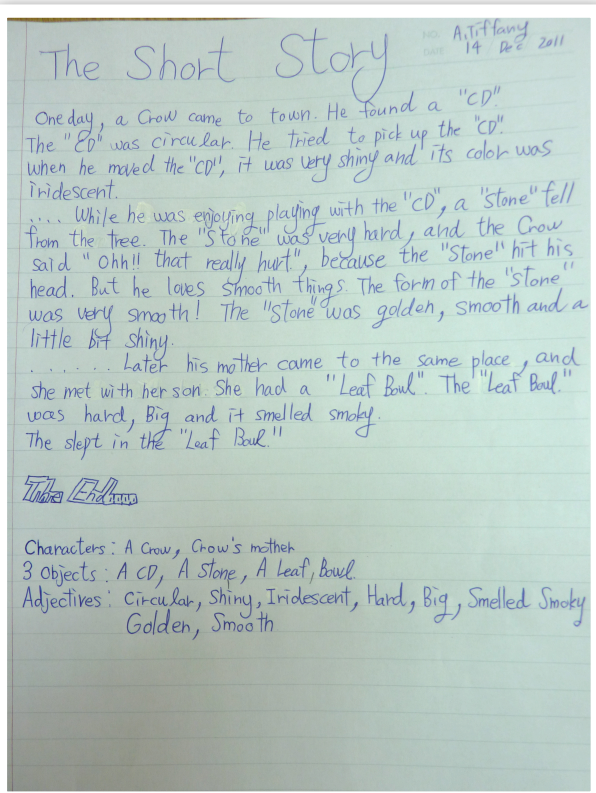 NO. A.Tiffany
DATE 14 Dec 2011
The Short Story
One day, a Crow came to town. He found a "CD".
The "CD" was circular. He tried to pick up the "CD".
when he moved the "CD", it was very shiny and its color was
iridescent.
.... While he was enjoying playing with the "CD", a "stone" fell
from the tree. The "Stone" was very hard, and the Crow
said " Ohh!! that really hurt", because the "Stone" hit his
head. But he loves smooth things. The form of the "stone"
was very smooth! The "Stone" was golden, smooth and a
little bit shiny.
....... Later his mother came to the same place, and
she met with her son. She had a "Leaf Bowl". The "Leaf Bowl."
was hard, Big and it smelled smoky.
The slept in the "Leaf Bowl."
The End....
Characters: A Crow, Crow's mother
3 Objects: A CD, A Stone, A Leaf, Bowl.
Adjectives: Circular, Shiny, Iridescent, Hard, Big, Smelled Smoky
Golden, Smooth